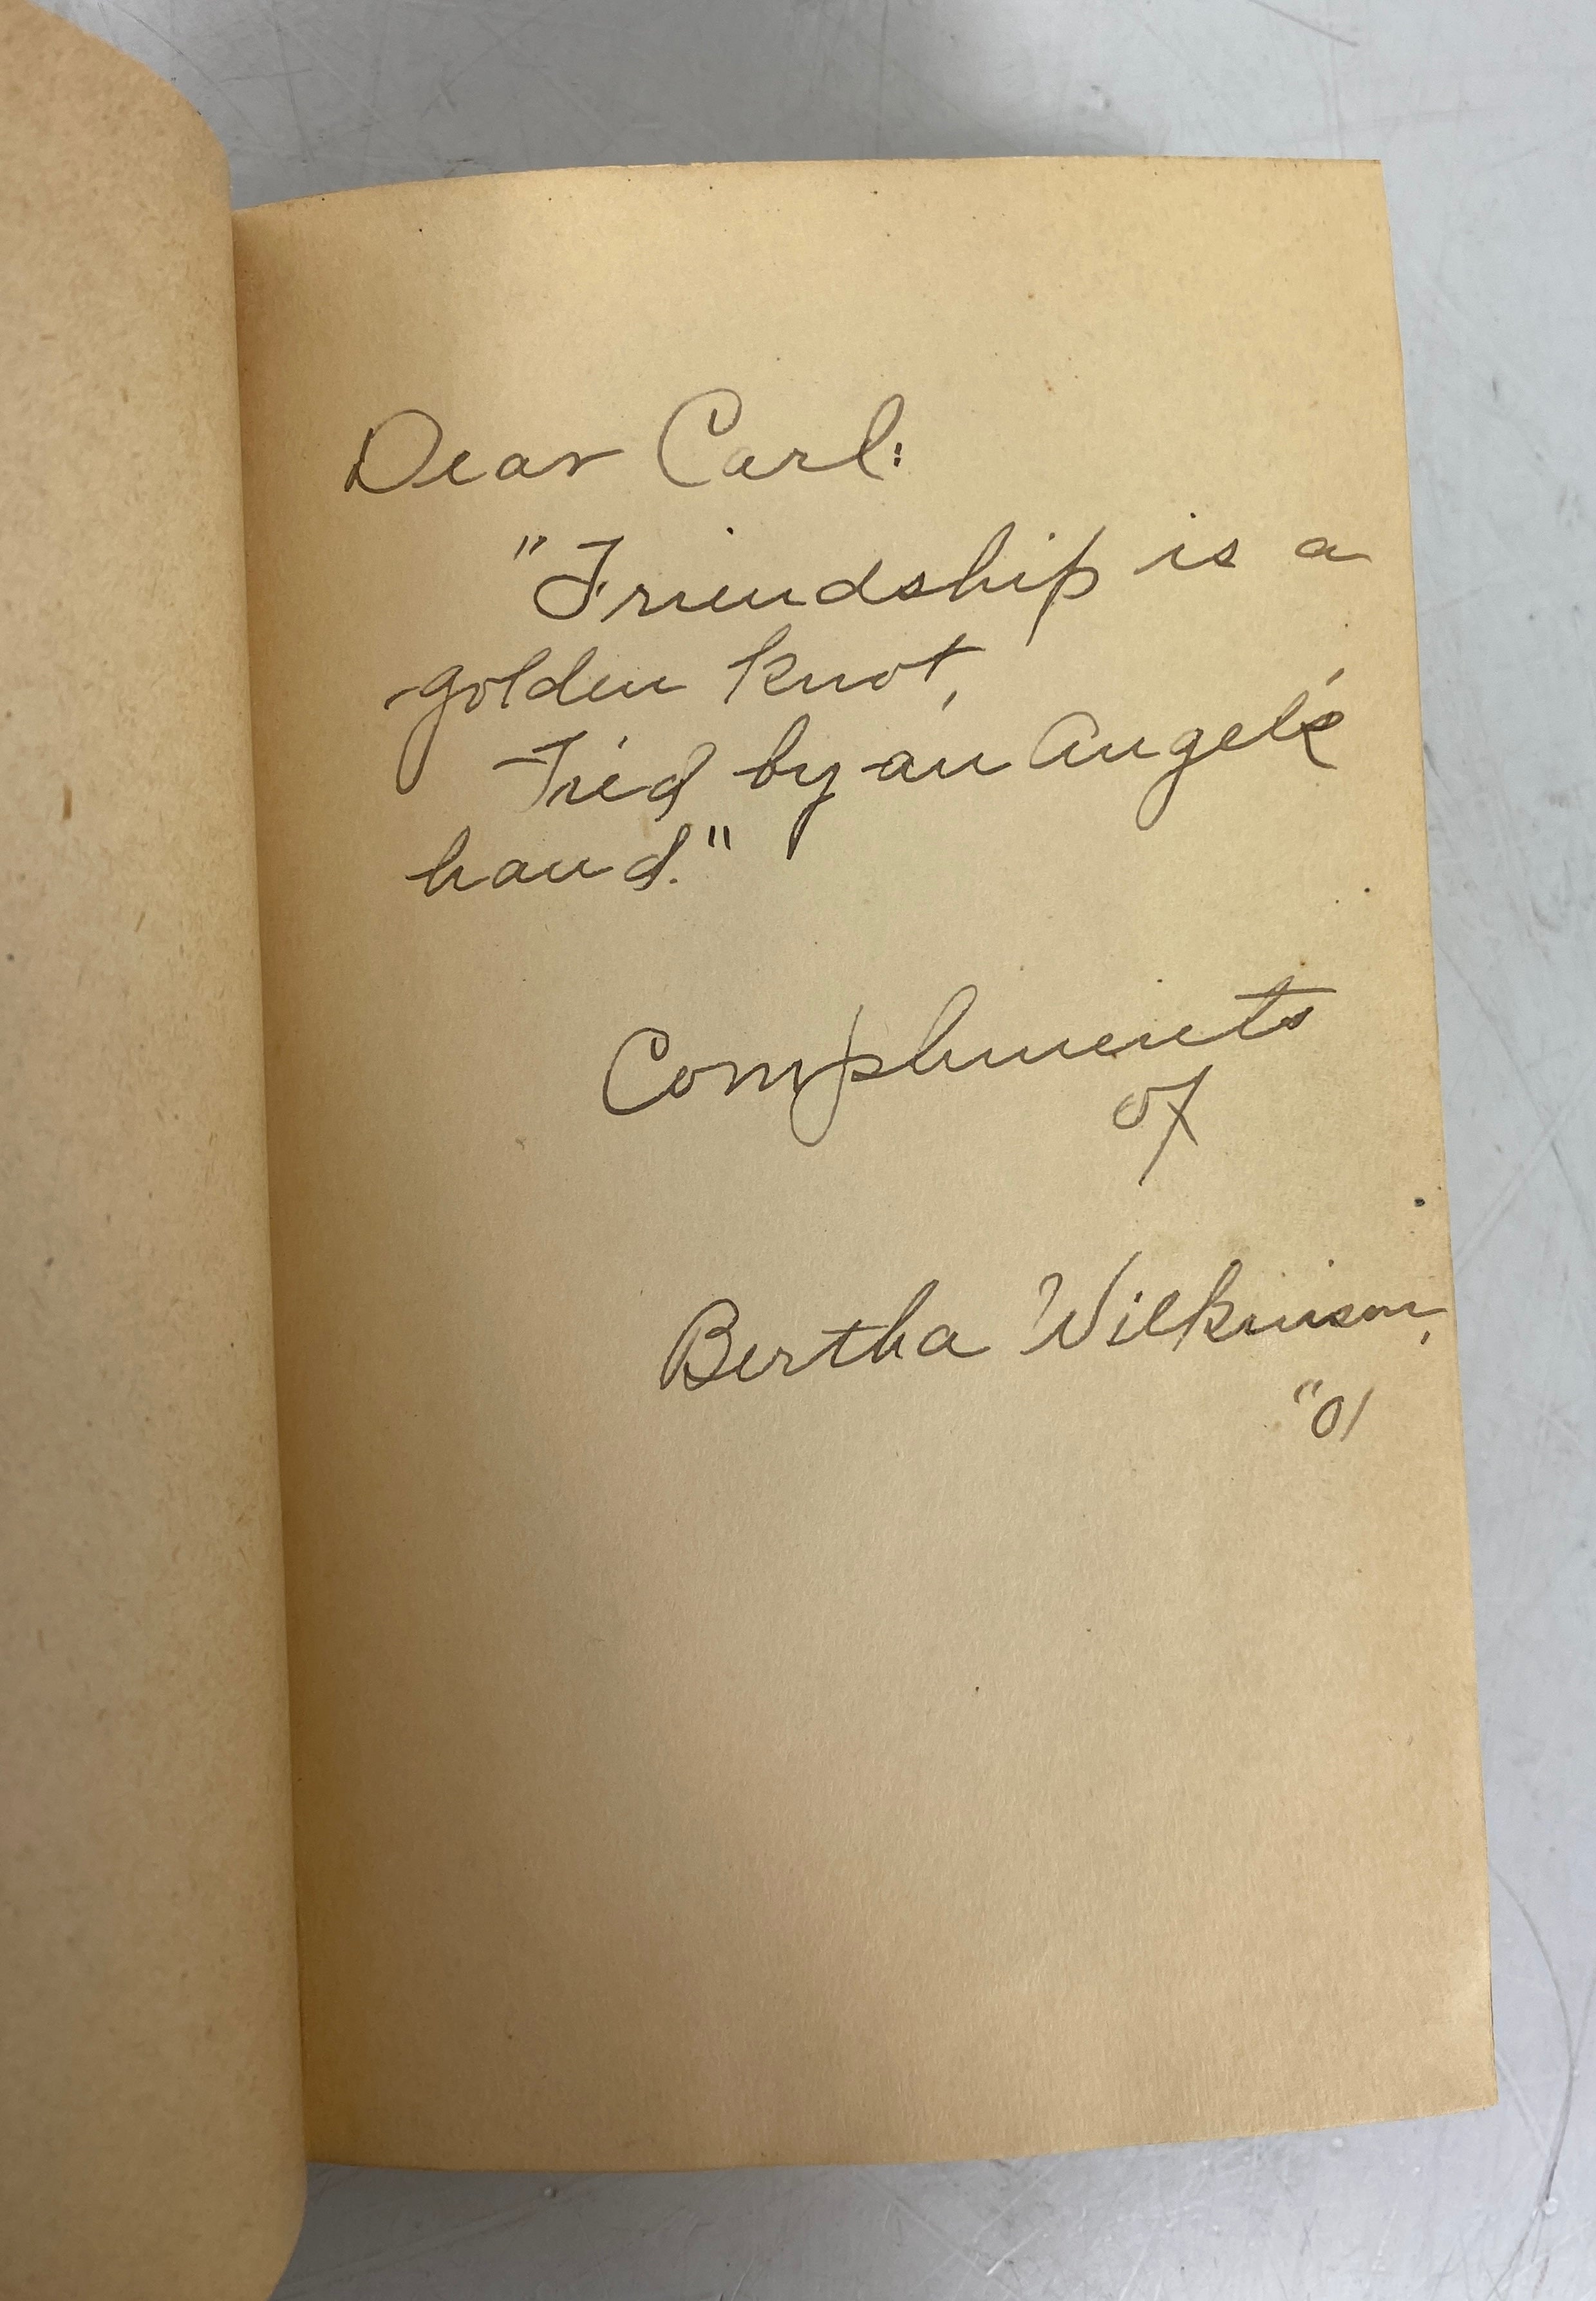 Dear Carl:
"Friendship is a
golden knot,
Tied by an Angel's
hand."
Compliments
of
Bertha Wilkinson,
"01